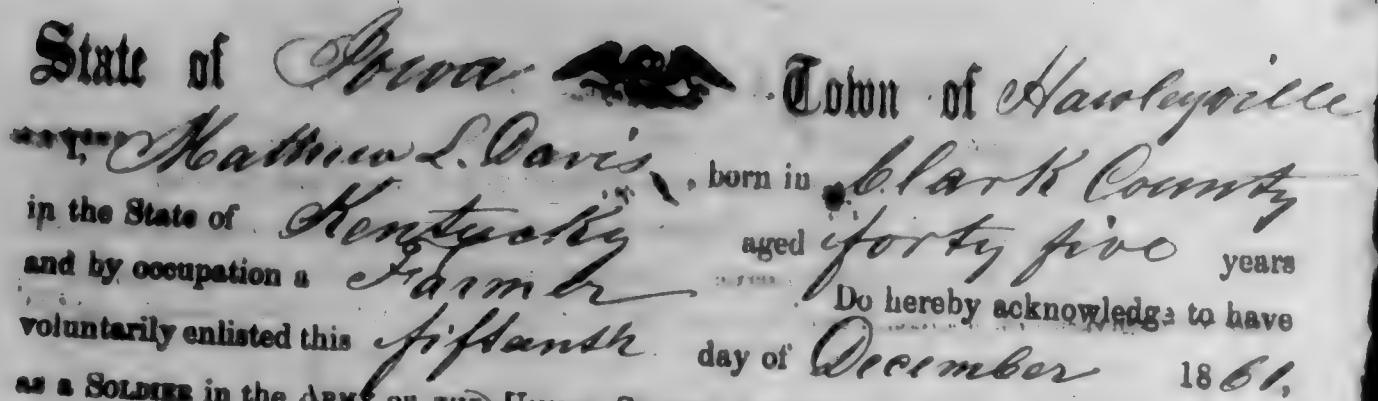 State of Iowa Town of Hawleyville
I, Mathew L. Davis, born in Clark County
in the State of Kentucky aged forty five years
and by occupation a Farmer Do hereby acknowledge to have
voluntarily enlisted this fifteenth day of December 1861,
as a SOLDIER in the ARMY OF THE